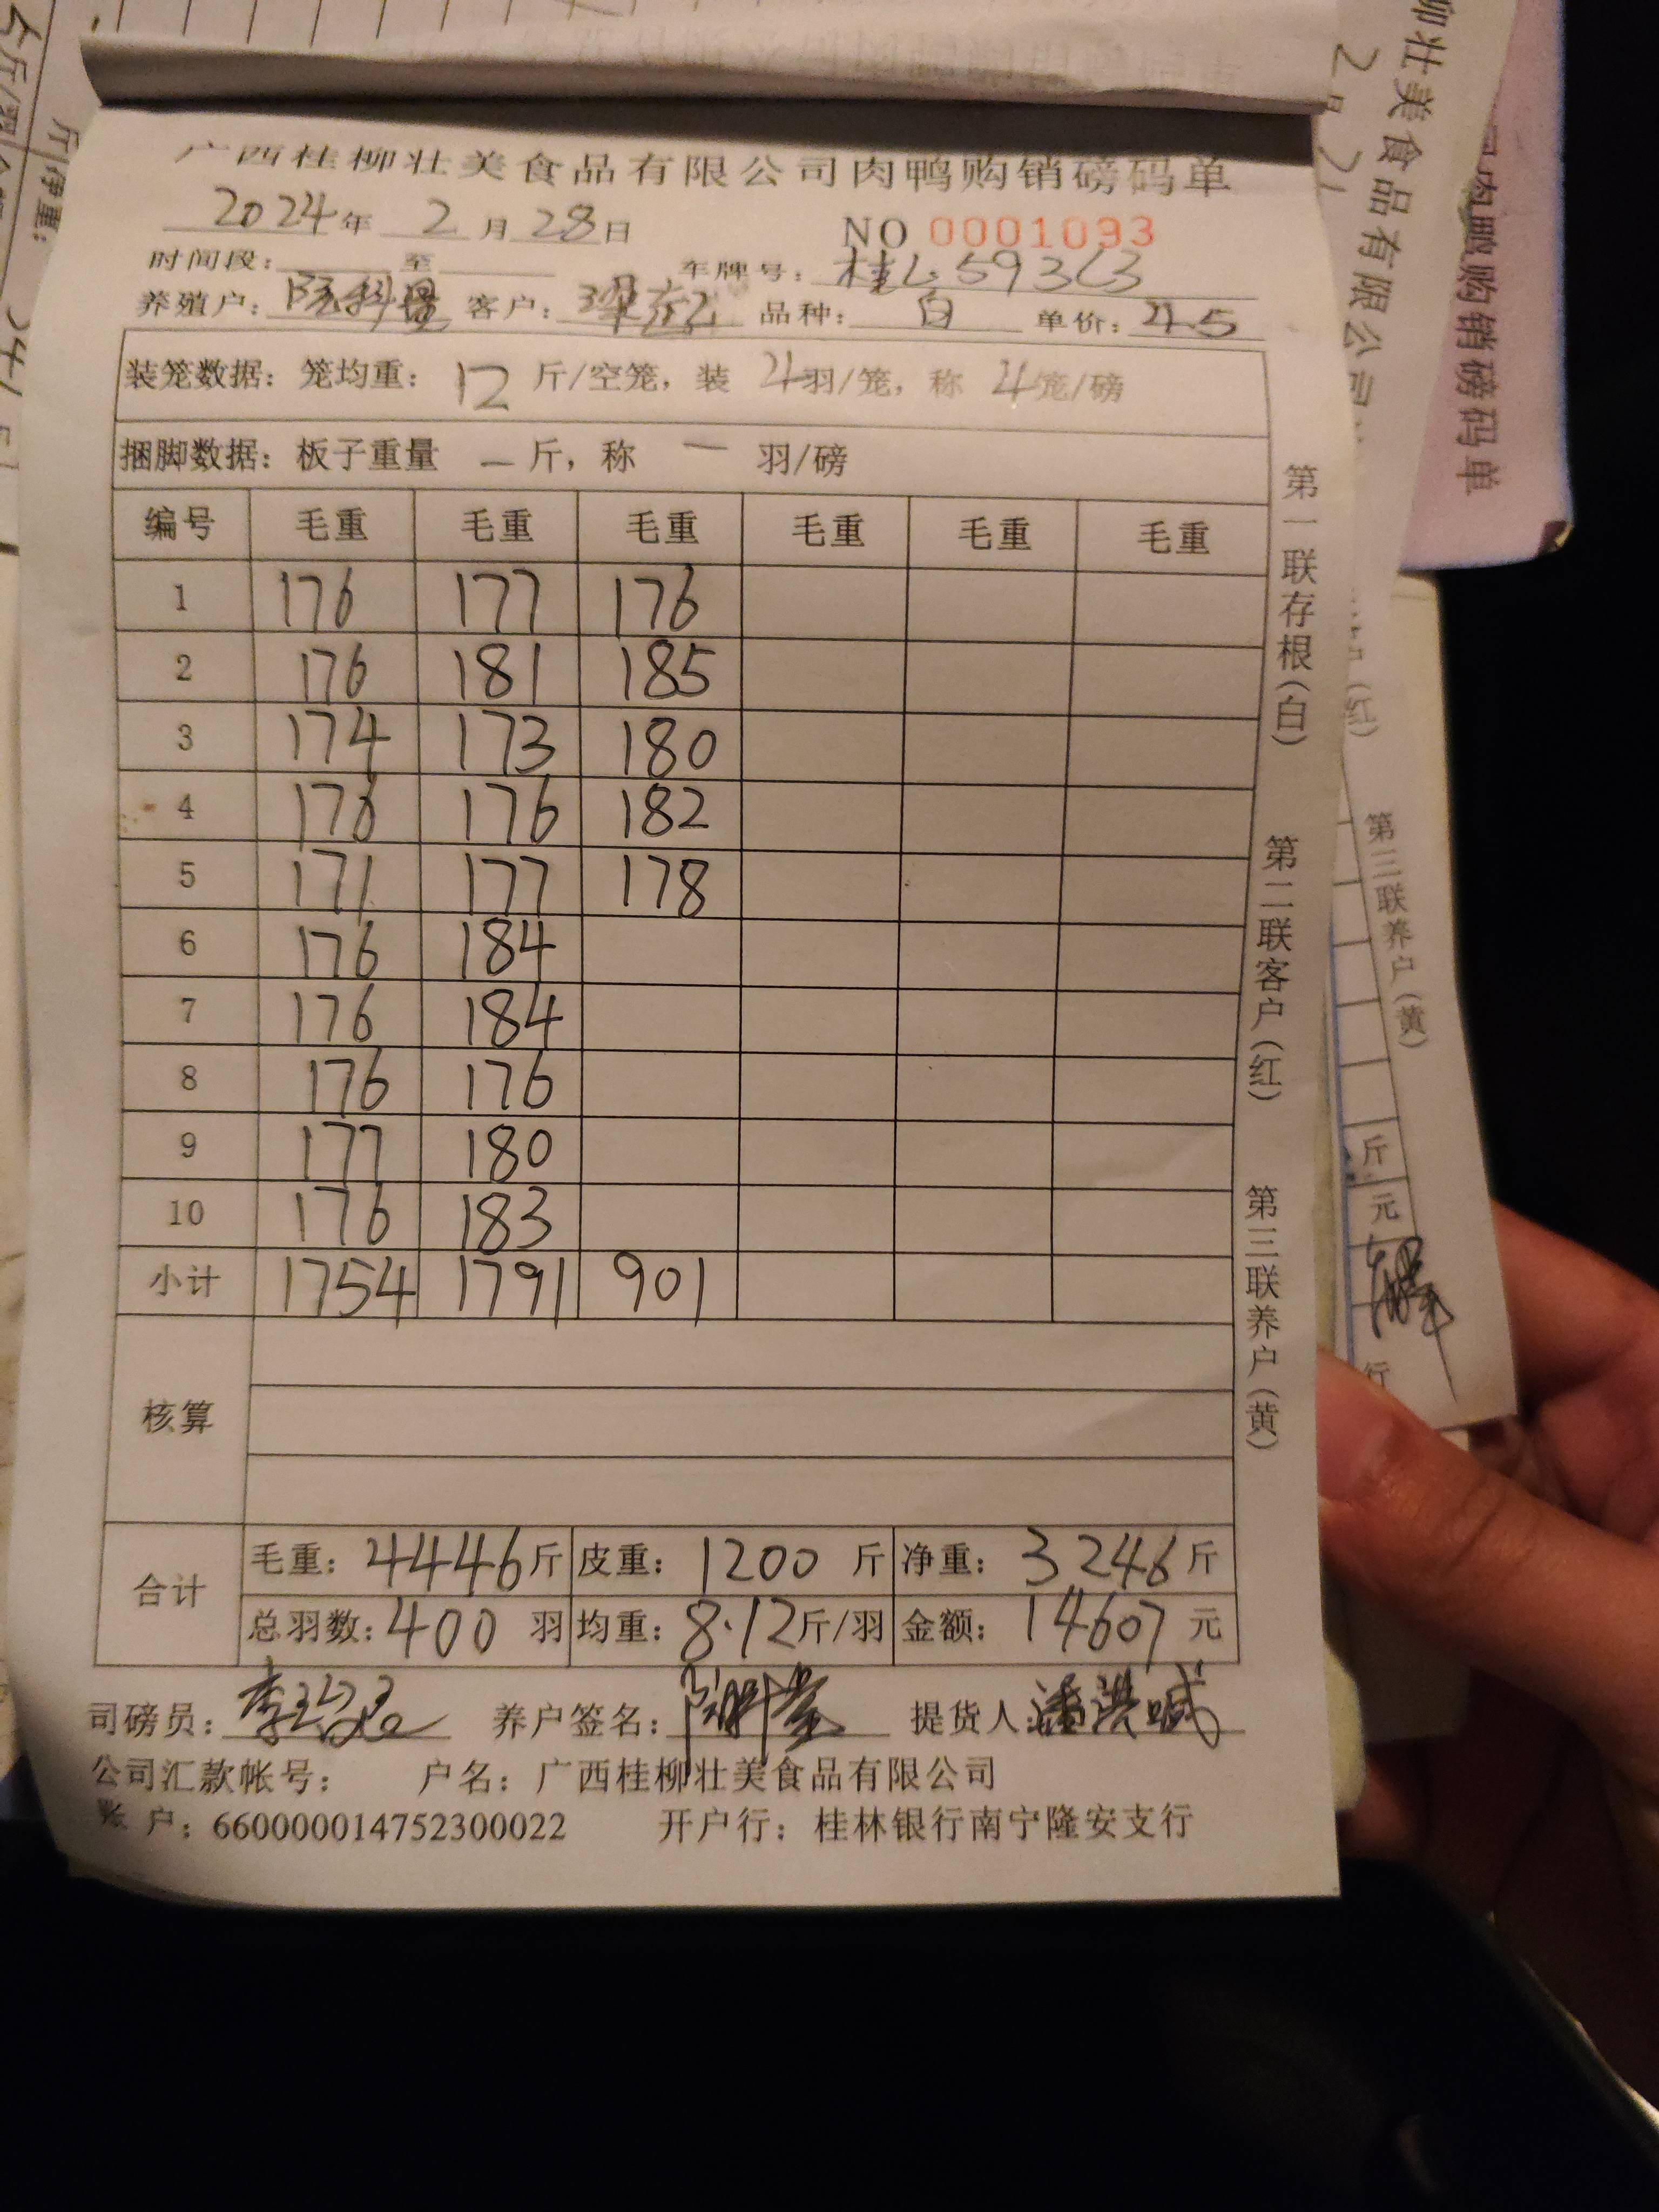 广西桂柳壮美食品有限公司肉鸭购销磅码单
2024年 2月28日 NO 0001093
时间段: 至 车牌号:
养殖户: 客户: 品种: 白 单价: 4.5
装笼数据: 笼均重: 12 斤/空笼, 装 4羽/笼, 称 4笼/磅
捆脚数据: 板子重量 — 斤, 称 — 羽/磅
编号 毛重 毛重 毛重 毛重 毛重 毛重
1 176 177 176
2 176 181 185
3 174 173 180
4 176 176 182
5 171 177 178
6 176 184
7 176 184
8 176 176
9 177 180
10 176 183
小计 1754 1791 901
核算
合计
毛重: 4446斤 皮重: 1200 斤 净重: 3246斤
总羽数: 400 羽 均重: 8.12斤/羽 金额: 14607 元
司磅员: 养户签名: 提货人:
公司汇款帐号: 户名: 广西桂柳壮美食品有限公司
账 户: 660000014752300022 开户行: 桂林银行南宁隆安支行
第一联存根(白)
第二联客户(红)
第三联养户(黄)
柳壮美食品有限公司
购销磅码单
第三联养户(黄)
斤
元